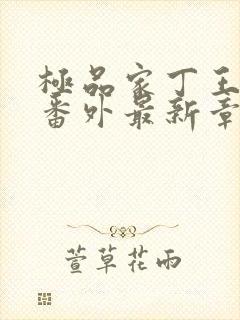 極品家丁王
番外最新章
萱草花雨